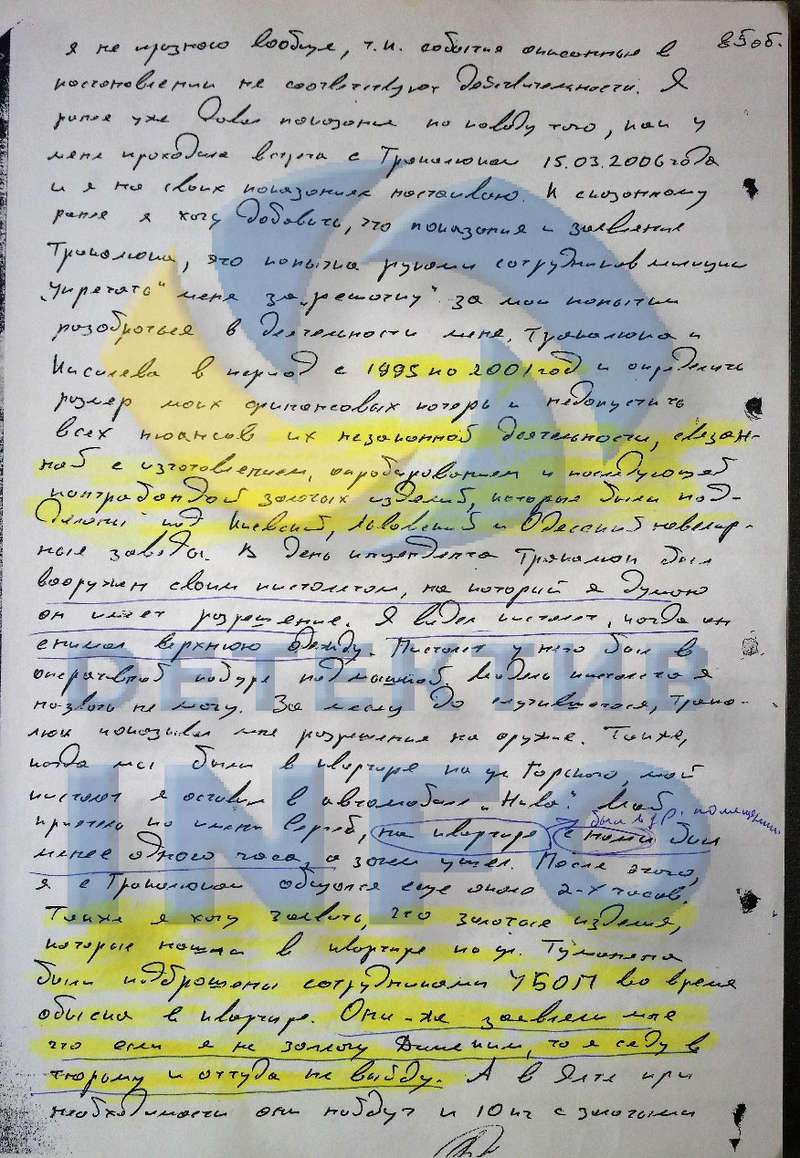 85 об.
я не признаю вообще, т.к. события описанные в
постановлении не соответствуют действительности. Я
ранее уже давал показания по поводу того, как у
меня проходила встреча с Траколюком 15.03.2006 года
и я на своих показаниях настаиваю. К сказанному
ранее я хочу добавить, что показания и заявление
Траколюка, это попытка руками сотрудников милиции
„упрятать" меня за „решотку" за мои попытки
разобраться в деятельности меня, Траколюка и
Киселева в период с 1995 по 2001 год и определить
размер моих финансовых потерь и недопустить
всех нюансов их незаконной деятельности, связан-
ной с изготовлением, апробированием и последующей
контрабандой золотых изделий, которые были под-
деланы под Киевский, Львовский и Одесский ювелир-
ные заводы. В день инцендента Траколюк был
вооружен своим пистолетом, на который я думаю
он имеет розрешение. Я видел пистолет, когда он
снимал верхнюю одежду. Пистолет у него был в
оперативной кобуре подмышкой. Модель пистолета я
назвать не могу. За месяц до случившегося, Трако-
люк показывал мне розрешение на оружие. Также,
когда мы были в квартире на ул. Горького, мой
пистолет я оставил в автомобиле „Нива". Мой
были в др. помещении
приятель по имени Сергей, на квартире с нами был
менее одного часа, а затем ушел. После этого,
я с Траколюком общался еще около 2-х часов.
Также я хочу заявить, что золотые изделия,
которые нашли в квартире на ул. Туманяна
были подброшены сотрудниками УБОП во время
обыска в квартире. Они-же заявляли мне
что если я не заплачу Данским, то я сяду в
тюрьму и оттуда не выйду. А в Ялте при
необходимости они найдут и 10 кг с золотыми